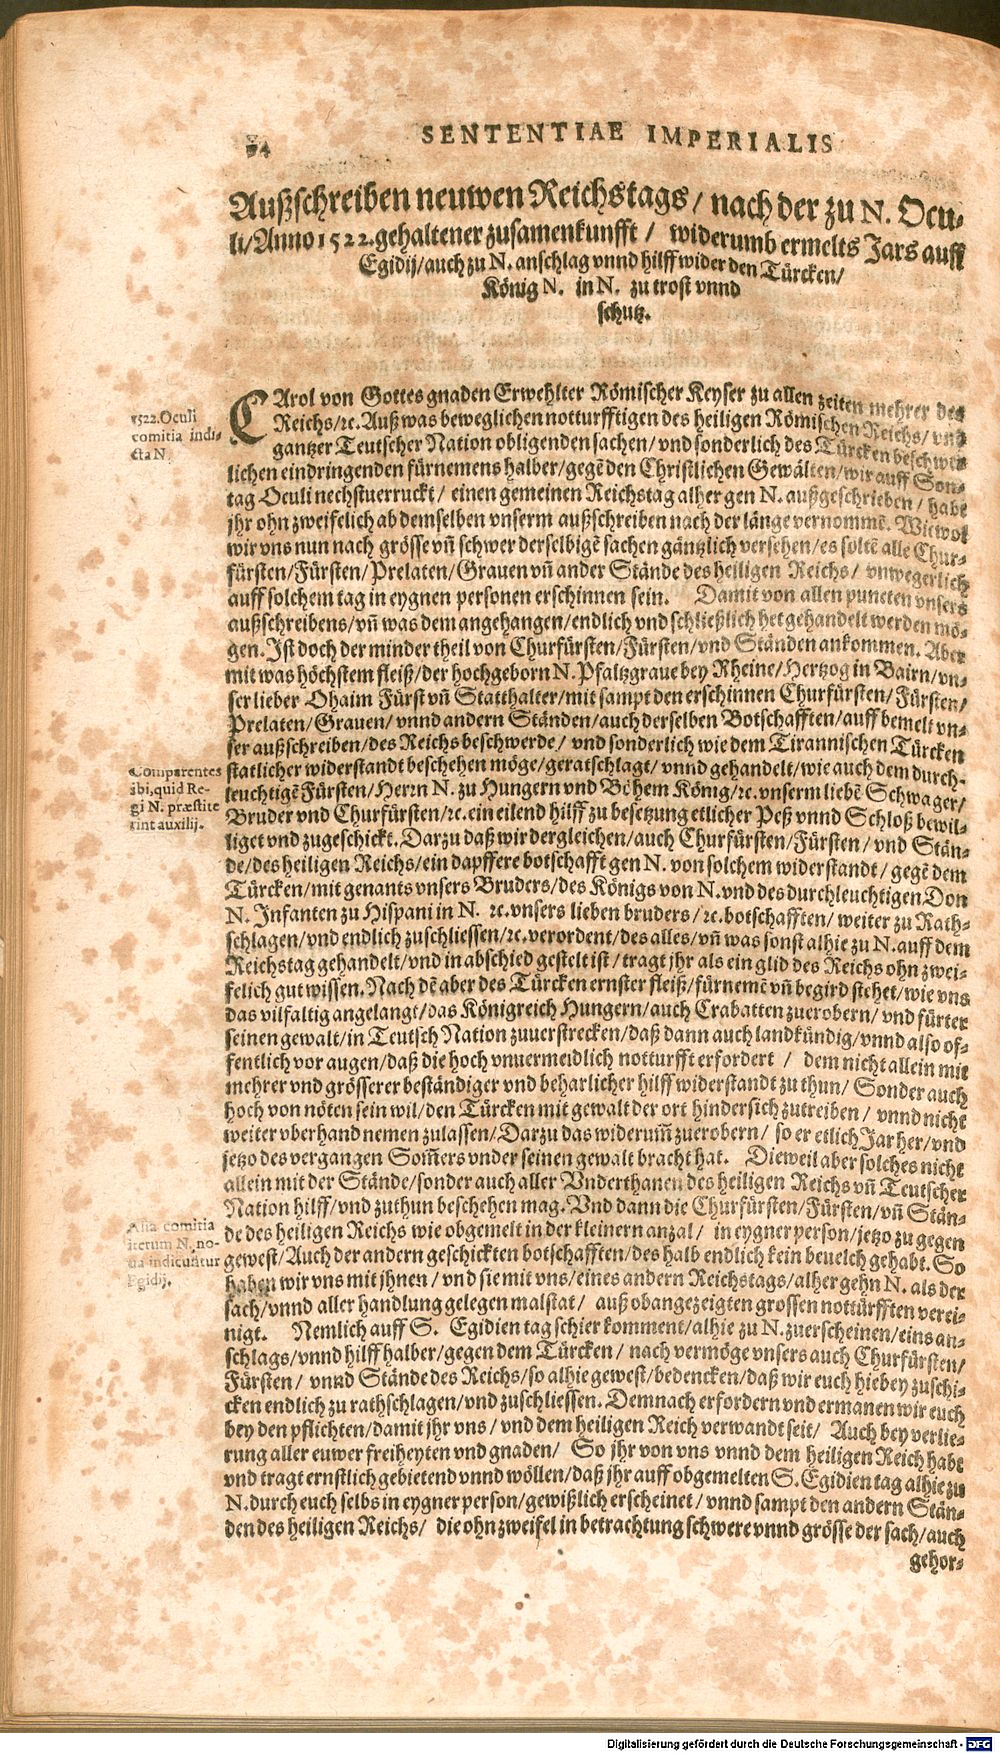 94
SENTENTIAE IMPERIALIS
Außschreiben neuwen Reichstags / nach der zu N. Ocu-
li/Anno 1522.gehaltener zusamenkunfft / widerumb ermelts Jars auff
Egidij/auch zu N. anschlag vnnd hilff wider den Türcken/
König N. in N. zu trost vnnd
schutz.
1522.Oculi
comitia indi-
cta N.
CArol von Gottes gnaden Erwehlter Römischer Keyser zu allen zeiten mehrer des
Reichs/ꝛc. Auß was beweglichen notturfftigen des heiligen Römischen Reichs/ vnd
gantzer Teutscher Nation obligenden sachen/ vnd sonderlich des Türcken beschwer-
lichen eindringenden fürnemens halber/gegẽ den Christlichen Gewälten/wir auff Son-
tag Oculi nechstuerruckt/ einen gemeinen Reichstag alher gen N. außgeschrieben/ habt
jhr ohn zweifelich ab demselben vnserm außschreiben nach der länge vernommẽ. Wiewol
wir vns nun nach grösse vñ schwer derselbigẽ sachen gäntzlich versehen/es soltẽ alle Chur-
fürsten/Fürsten/Prelaten/Grauen vñ ander Stände des heiligen Reichs/ vnwegerlich
auff solchem tag in eygnen personen erschinnen sein. Damit von allen puncten vnsers
außschreibens/vñ was dem angehangen/endlich vnd schließlich het gehandelt werden mö-
gen. Ist doch der minder theil von Churfürsten/Fürsten/vnd Ständen ankommen. Aber
mit was höchstem fleiß/der hochgeborn N. Pfaltzgraue bey Rheine/Hertzog in Bairn/vn-
ser lieber Ohaim Fürst vñ Statthalter/mit sampt den erschinnen Churfürsten/Fürsten/
Prelaten/Grauen/ vnnd andern Ständen/auch derselben Botschafften/auff bemelt vn-
ser außschreiben/des Reichs beschwerde/ vnd sonderlich wie dem Tirannischen Türcken
Comparentes
ibi,quid Re-
gi N. præstite
rint auxilij.
statlicher widerstandt beschehen möge/geratschlagt/ vnnd gehandelt/wie auch dem durch-
leuchtigẽ Fürsten/Herrn N. zu Hungern vnd Böhem König/ꝛc. vnserm liebẽ Schwager/
Bruder vnd Churfürsten/ꝛc.ein eilend hilff zu besetzung etlicher Peß vnnd Schloß bewil-
liget vnd zugeschickt. Darzu daß wir dergleichen/auch Churfürsten/Fürsten/ vnd Stän-
de/des heiligen Reichs/ein dapffere botschafft gen N. von solchem widerstandt/ gegẽ dem
Türcken/mit genants vnsers Bruders/des Königs von N.vnd des durchleuchtigen Don
N. Infanten zu Hispani in N. ꝛc.vnsers lieben bruders/ꝛc.botschafften/ weiter zu Rath-
schlagen/vnd endlich zuschliessen/ꝛc.verordent/des alles/vñ was sonst alhie zu N.auff dem
Reichstag gehandelt/vnd in abschied gestelt ist/ tragt jhr als ein glid des Reichs ohn zwei-
felich gut wissen. Nach dẽ aber des Türcken ernster fleiß/fürnemẽ vñ begird stehet/wie vns
das vilfaltig angelangt/das Königreich Hungern/auch Crabatten zuerobern/ vnd fürter
seinen gewalt/in Teutsch Nation zuuerstrecken/daß dann auch landkündig/vnnd also of-
fentlich vor augen/daß die hoch vnuermeidlich notturfft erfordert / dem nicht allein mit
mehrer vnd grösserer beständiger vnd beharlicher hilff widerstandt zu thun/ Sonder auch
hoch von nöten sein wil/den Türcken mit gewalt der ort hindersich zutreiben/ vnnd nicht
weiter vberhand nemen zulassen/Darzu das widerum̃ zuerobern/ so er etlich Jar her/vnd
jetzo des vergangen Som̃ers vnder seinen gewalt bracht hat. Dieweil aber solches nicht
allein mit der Stände/sonder auch aller Vnderthanen des heiligen Reichs vñ Teutscher
Nation hilff/vnd zuthun beschehen mag. Vnd dann die Churfürsten/Fürsten/vñ Stän-
Alia comitia
iterum N. no-
ua indicuntur
Egidij.
de des heiligen Reichs wie obgemelt in der kleinern anzal/ in eygner person/jetzo zu gegen
gewest/Auch der andern geschickten botschafften/des halb endlich kein beuelch gehabt. So
haben wir vns mit jhnen / vnd sie mit vns/eines andern Reichstags/alher gehn N. als der
sach/vnnd aller handlung gelegen malstat/ auß obangezeigten grossen nottürfften verei-
nigt. Nemlich auff S. Egidien tag schier komment/alhie zu N.zuerscheinen/eins an-
schlags/vnnd hilff halber/gegen dem Türcken/ nach vermöge vnsers auch Churfürsten/
Fürsten/ vnnd Stände des Reichs/so alhie gewest/bedencken/daß wir euch hiebey zuschi-
cken endlich zu rathschlagen/vnd zuschliessen. Demnach erfordern vnd ermanen wir euch
bey den pflichten/damit jhr vns/ vnd dem heiligen Reich verwandt seit/ Auch bey verlie-
rung aller euwer freiheyten vnd gnaden/ So jhr von vns vnnd dem heiligen Reich habt
vnd tragt ernstlich gebietend vnnd wöllen/daß jhr auff obgemelten S. Egidien tag alhie zu
N.durch euch selbs in eygner person/gewißlich erscheinet/ vnnd sampt den andern Stän-
den des heiligen Reichs/ die ohn zweifel in betrachtung schwere vnnd grösse der sach/auch
gehor-
Digitalisierung gefördert durch die Deutsche Forschungsgemeinschaft - DFG